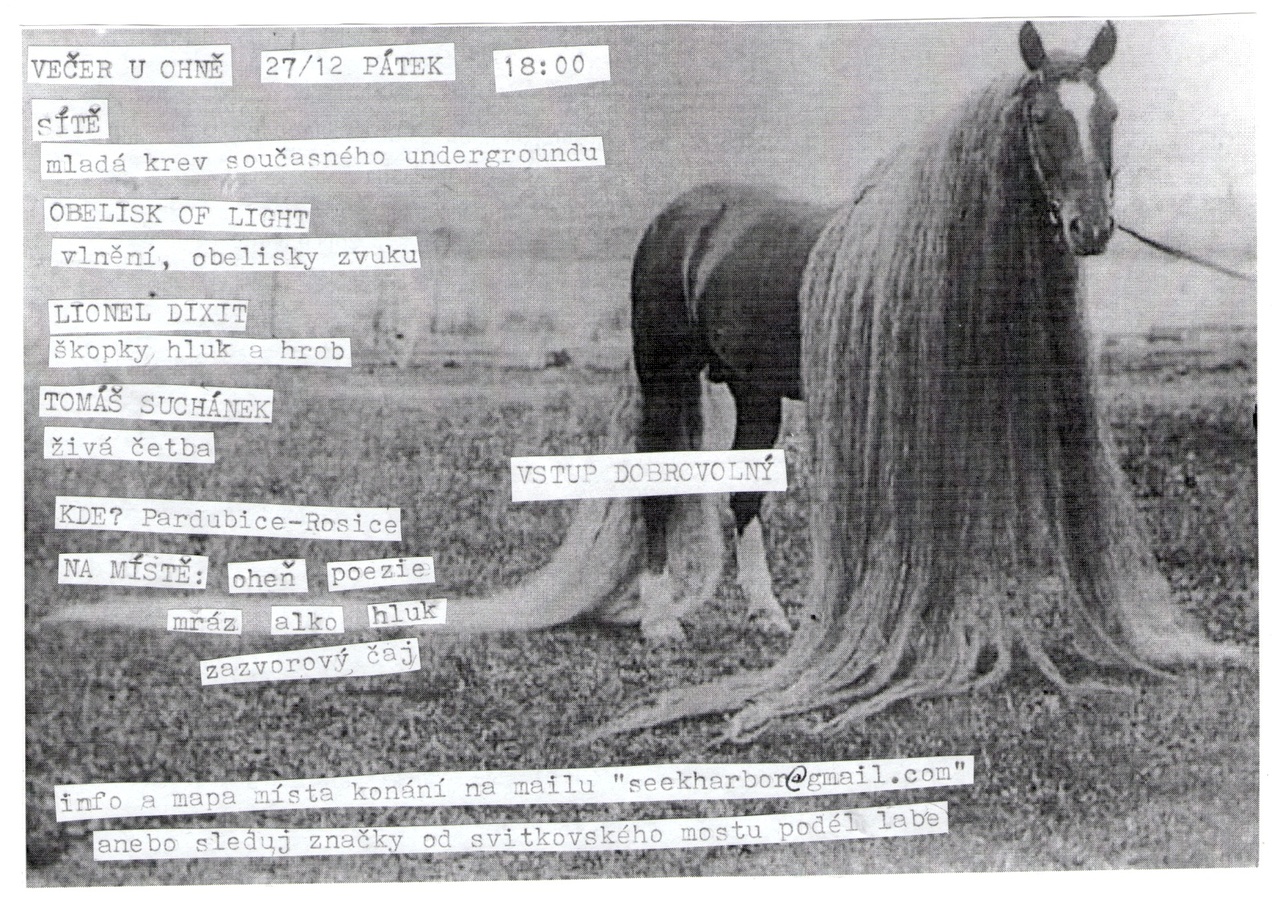 VEČER U OHNĚ 27/12 PÁTEK 18:00
SÍTĚ
mladá krev současného undergroundu
OBELISK OF LIGHT
vlnění, obelisky zvuku
LIONEL DIXIT
škopky, hluk a hrob
TOMÁŠ SUCHÁNEK
živá četba
VSTUP DOBROVOLNÝ
KDE? Pardubice-Rosice
NA MÍSTĚ: oheň poezie
mráz alko hluk
zazvorový čaj
info a mapa místa konání na mailu "seekharbor@gmail.com"
anebo sleduj značky od svitkovského mostu podél labe